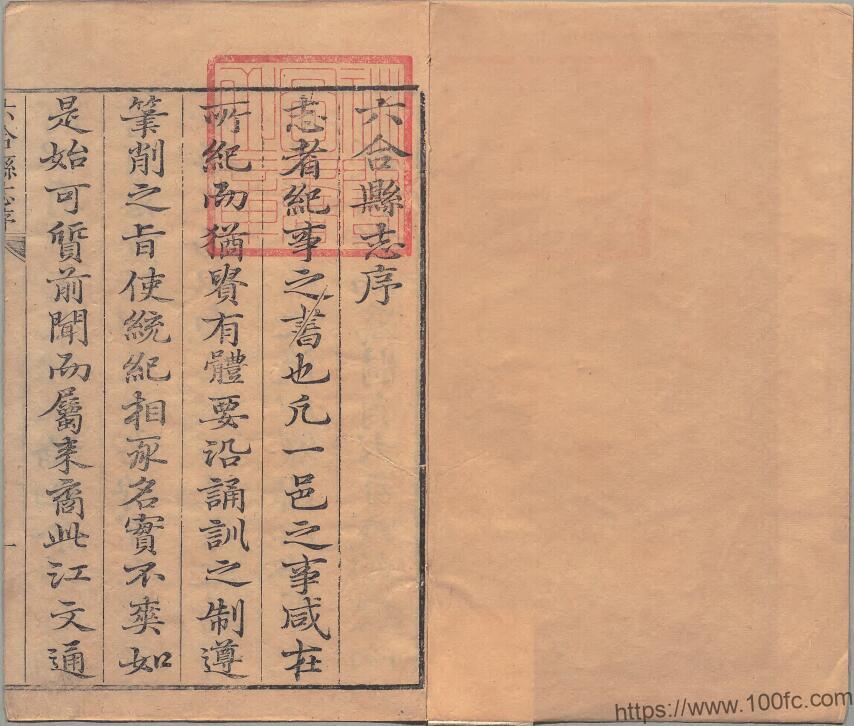 六合縣志序
志者紀事之書也凡一邑之事咸在
所紀而猶貴有體要沿誦訓之制遵
筆削之旨使統紀相承名實不爽如
是始可質前聞而屬來商此江文通
六合縣志序
一
https://www.100fc.com